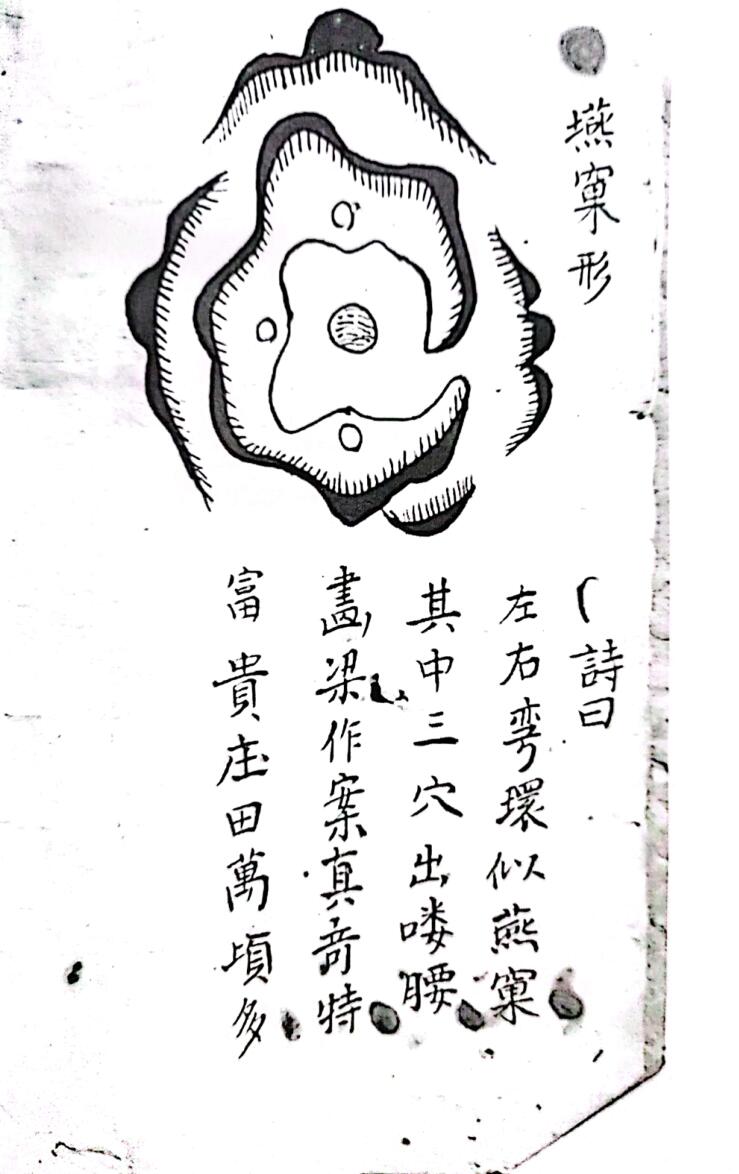 燕窠形
詩曰
左右弯環似燕窠
其中三穴出喽腰
畫梁作案真奇特
富貴庄田萬頃多